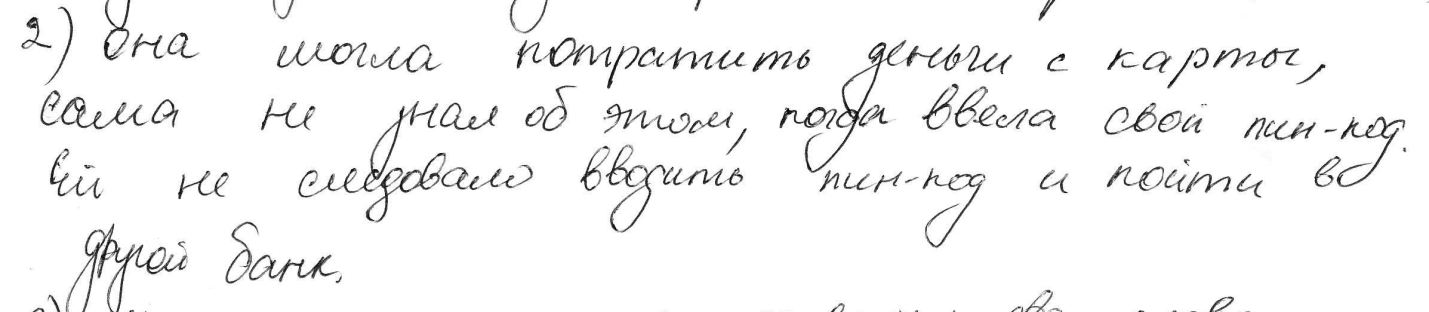 2) она могла потратить деньги с карты,
сама не знал об этом, когда ввела свой пин-код.
Ей не следовало вводить пин-код и пойти в
другой банк.